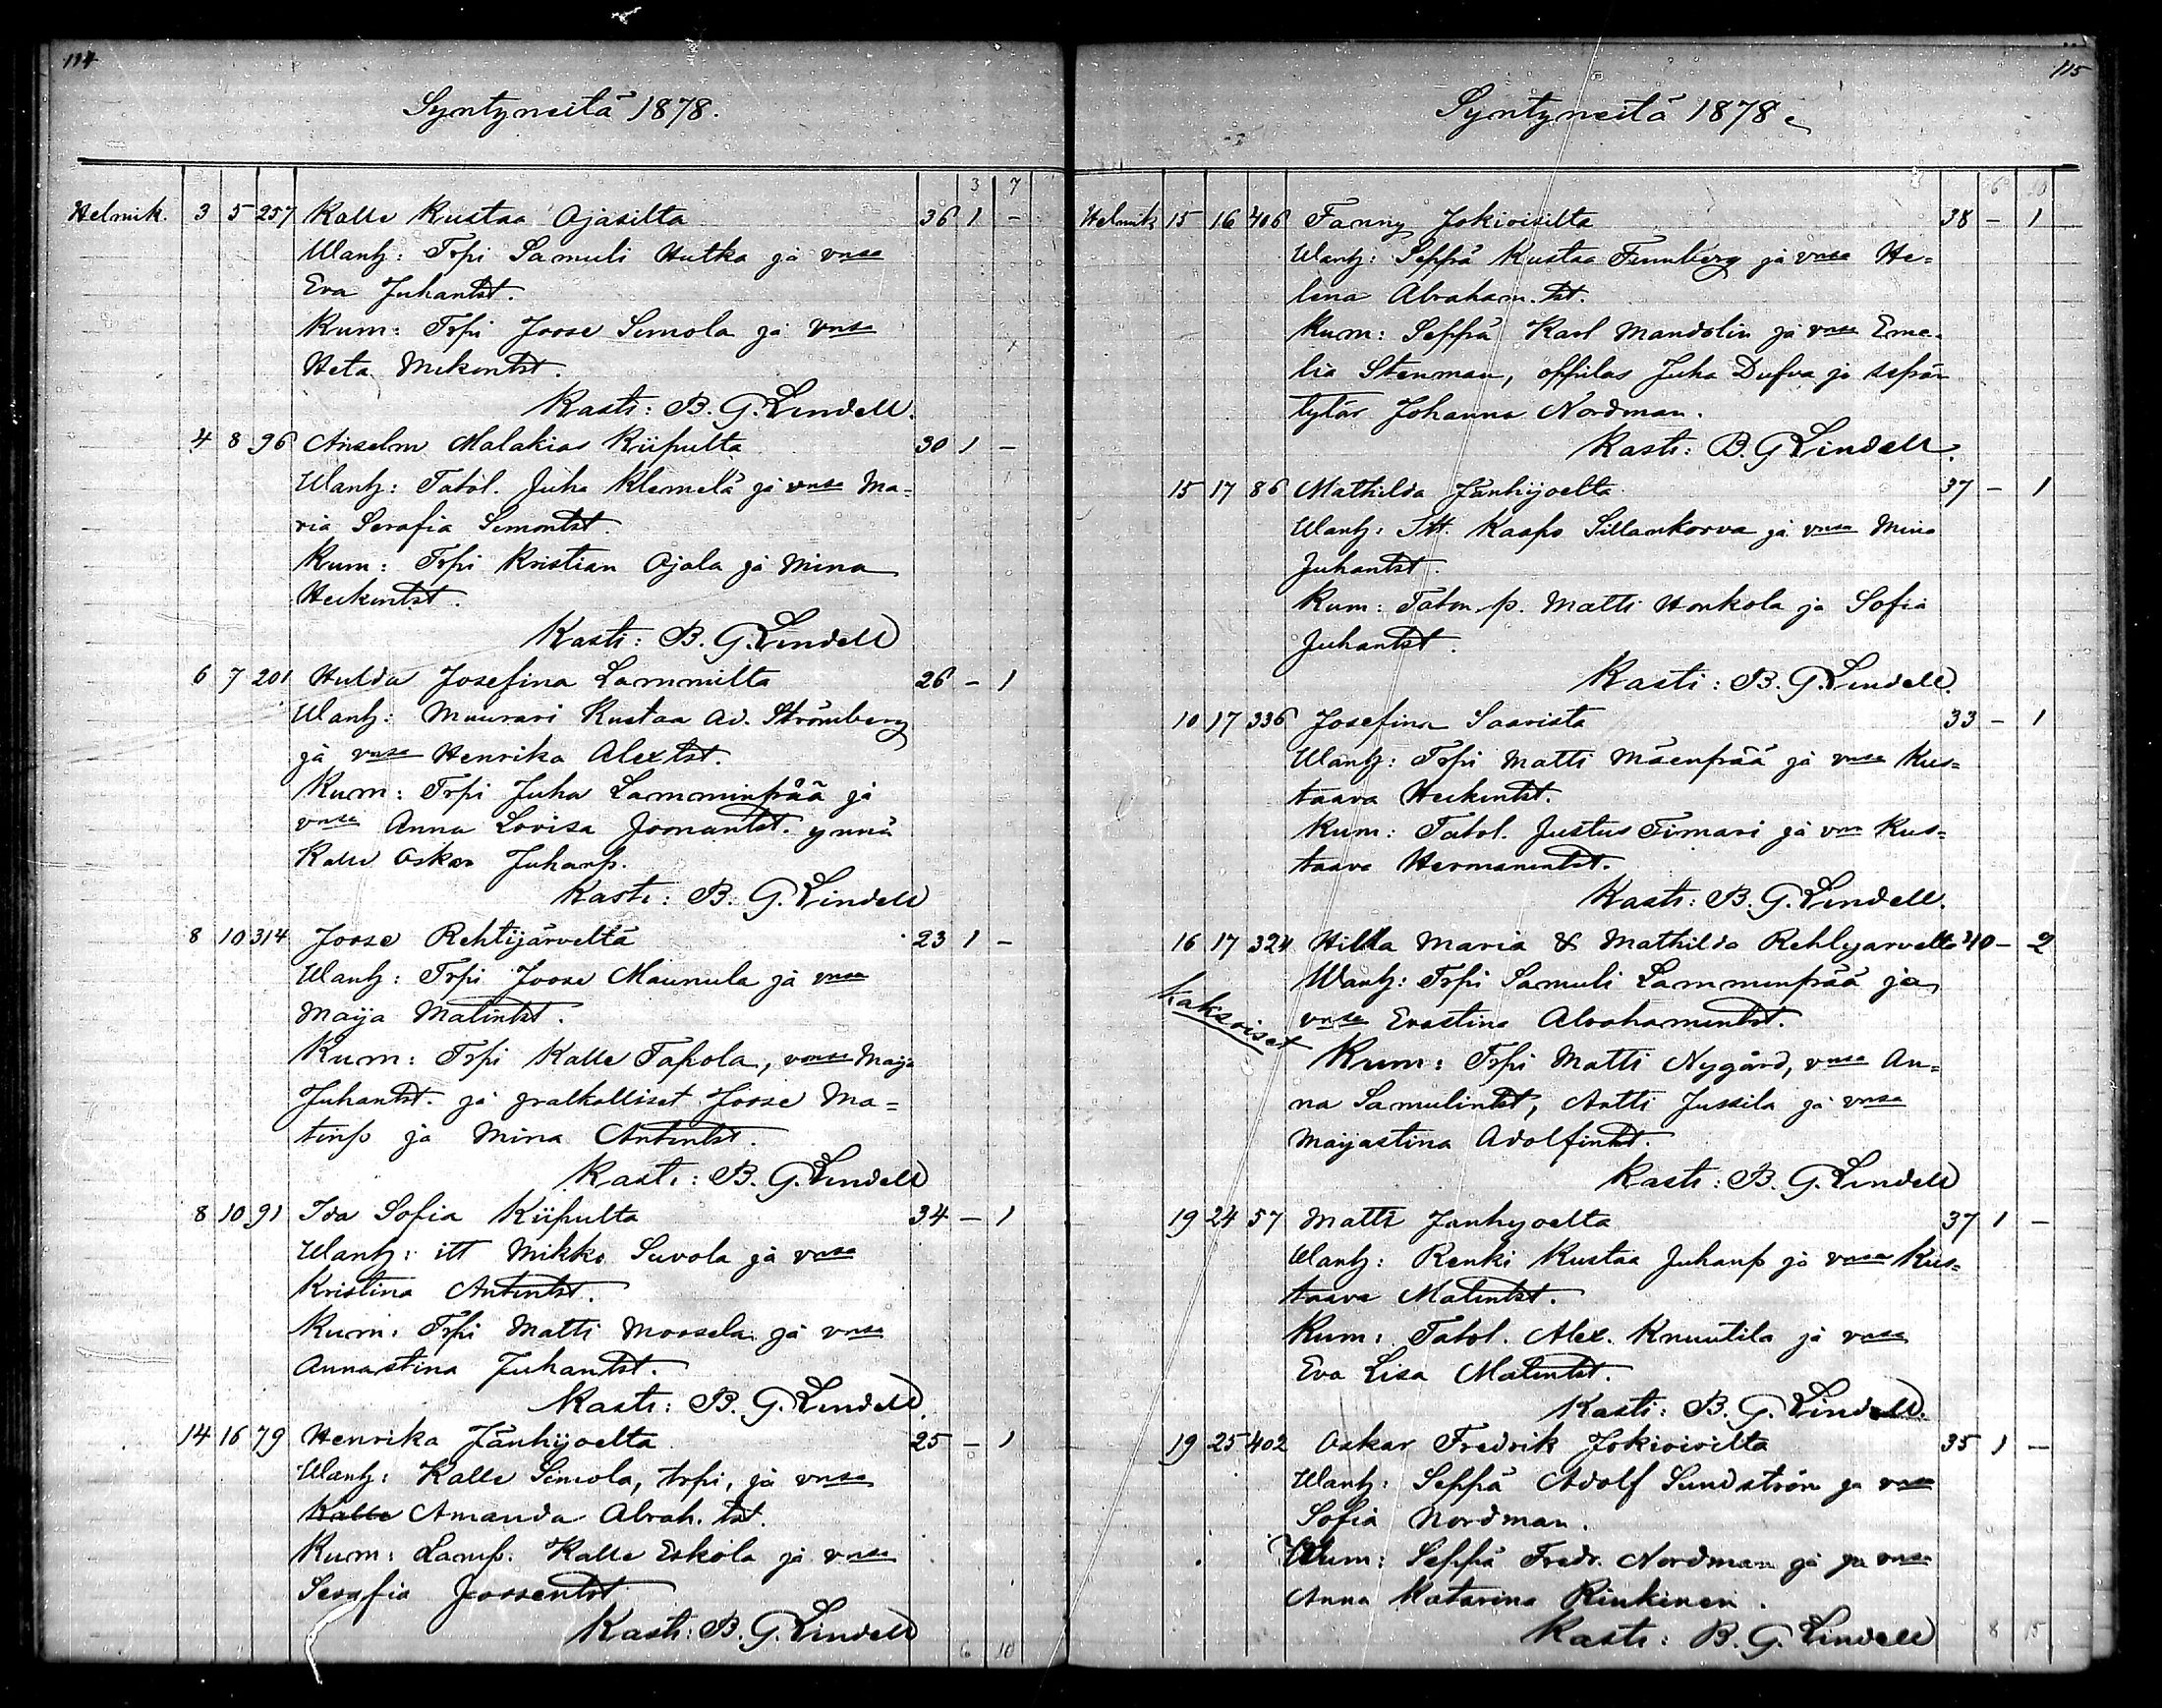 114
Syntyneitä 1878.
3 7
Helmik. 3 5 257 Kalle Kustaa Ojasilta 36 1 -
Wanh: Trpi Samuli Hutka ja vmsa
Eva Juhantst.
Kum: Trpi Joose Simola ja vmsa
Heta Mikontst.
Kasti: B. G. Lindell.
4 8 96 Anselm Malakias Kiipulta 30 1 -
Wanh: Tatol. Juha Klemelä ja vmsa Ma=
ria Serafia Simontst.
Kum: Trpi Kristian Ojala ja Mina
Heikintst.
Kasti: B. G. Lindell
6 7 201 Hulda Josefina Lammilta 26 - 1
Wanh: Muurari Kustaa Ad. Strömberg
ja vmsa Henrika Alextst.
Kum: Trpi Juha Lamminpää ja
vmsa Anna Lovisa Joonantst. ynnä
Kalle Oskar Juhanp.
Kasti: B. G. Lindell
8 10 314 Joose Rehtijärveltä 23 1 -
Wanh: Trpi Joose Maunula ja vmsa
Maija Matintst.
Kum: Trpi Kalle Tapola, vmsa Maija
Juhantst. ja Joose Ma=
tinp ja Mina Antintst.
Kasti: B. G. Lindell
8 10 91 Ida Sofia Kiipulta 34 - 1
Wanh: itt Mikko Suvola ja vmsa
Kristina Antintst.
Kum: Trpi Matti Moosela ja vmsa
Annastina Juhantst.
Kasti: B. G. Lindell.
14 16 79 Henrika Jänhijoelta 25 - 1
Wanh: Kalle Simola, trpi, ja vmsa
Kalle Amanda Abrah. tst.
Kum: Lamp. Kalle Eskola ja vmsa
Serafia Joosentst
Kasti: B. G. Lindell
6 10
115
Syntyneitä 1878.
6 10
Helmik 15 16 406 Fanny Jokioisilta 38 - 1
Wanh: Seppä Kustaa Finnberg ja vmsa He=
lena Abraham. tst.
Kum: Seppä Karl Mandolin ja vmsa Eme=
lia Stenman, oppilas Juha Dufva ja sepän
tytär Johanna Nordman.
Kasti: B. G Lindell.
15 17 86 Mathilda Jänhijoelta 37 - 1
Wanh: Itt. Kaapo Sillankorva ja vmsa Mina
Juhantst.
Kum: Taton. p. Matti Honkola ja Sofia
Juhantst.
Kasti: B. G. Lindell.
10 17 336 Josefina Saarista 33 - 1
Wanh: Trpi Matti Mäenpää ja vmsa Kus=
taava Heikintst.
Kum: Tatol. Justus Timari ja vm Kus=
taava Hermanintst.
Kasti: B. G. Lindell.
16 17 324 Hilla Maria & Mathilda Rehtijarvelta 40 - 2
Wanh: Trpi Samuli Lamminpää ja
Kaksoiset
vmsa Evastina Abrahamintst.
Kum: Trpi Matti Nygård, vmsa An=
na Samulintst, Antti Jussila ja vmsa
Maijastina Adolfintst.
Kasti: B. G. Lindell
19 24 57 Matti Janhijoelta 37 1 -
Wanh: Renki Kustaa Juhanp ja vmsa Kus=
taava Matintst.
Kum: Tatol. Alex. Knuutila ja vmsa
Eva Lisa Matintst.
Kasti: B. G. Lindell.
19 25 402 Oskar Fredrik Jokioisilta 35 1 -
Wanh: Seppä Adolf Sundström ja vmsa
Sofia Nordman.
Kum: Seppä Fredr. Nordman ja ja vmsa
Anna Katarina Rinkinen.
Kasti: B. G. Lindell
8 15